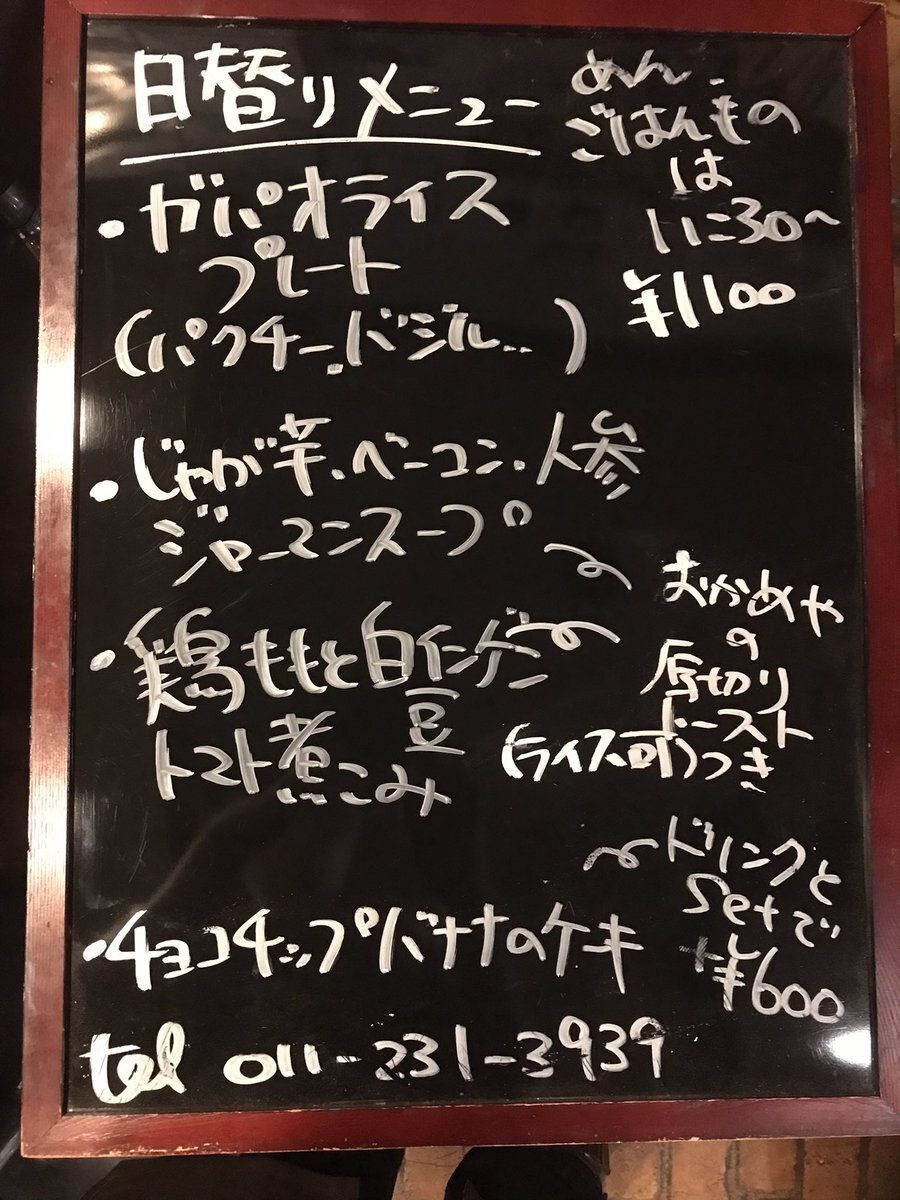 日替りメニュー
めん、
ごはんもの
は
11:30~
¥1100
・ガパオライス
プレート
(パクチー、バジル…)
・じゃが芋、ベーコン、人参
ジャーマンスープ
・鶏ももと白インゲン
豆
トマト煮こみ
おかめや
の
厚切り
トースト
(ライス可)つき
ドリンクと
Setで
+¥600
・チョコチップバナナのケーキ
tel 011-231-3939